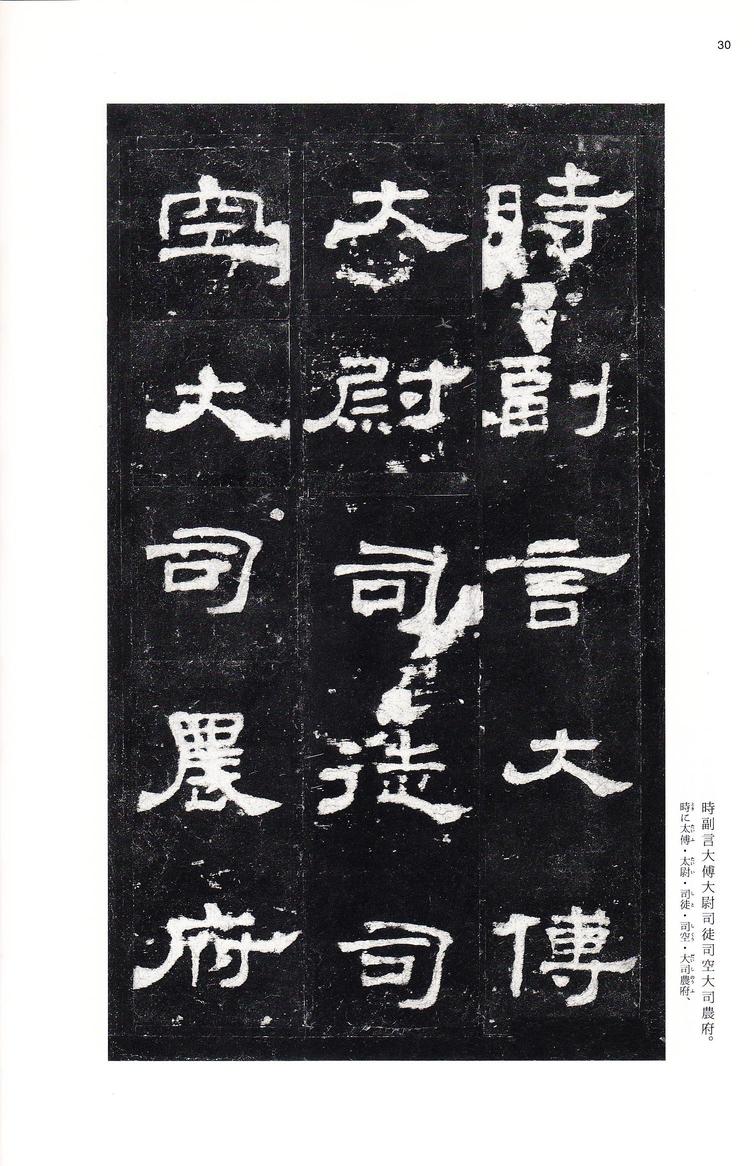 30
時副言大傅
大尉司徒司
空大司農府
時副言大傅大尉司徒司空大司農府。
時に太傅・太尉・司徒・司空・大司農府、